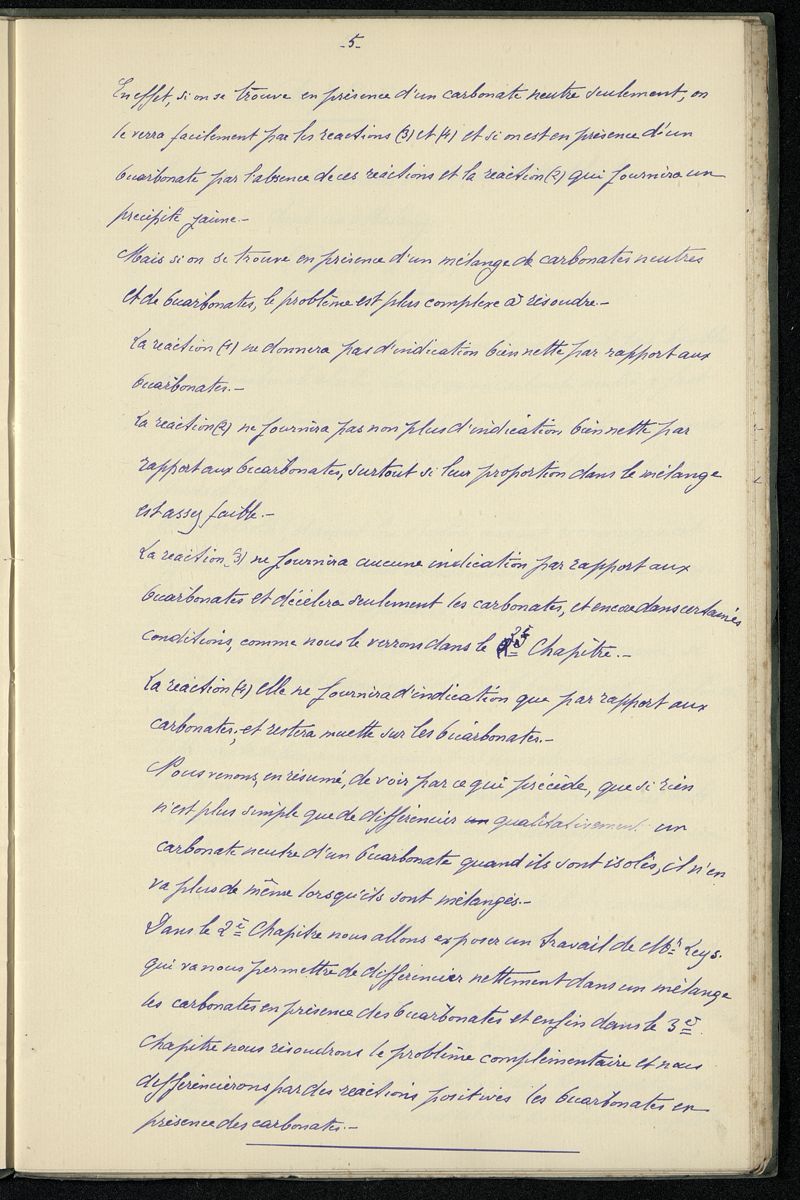 -5-
En effet, si on se trouve en présence d'un carbonate neutre seulement, on
le verra facilement par les réactions (3) et (4) et si on est en présence d'un
bicarbonate par l'absence de ces réactions et la réaction (2) qui fournira un
précipité jaune.-
Mais si on se trouve en présence d'un mélange de carbonates neutres
et de bicarbonates, le problème est plus complexe à résoudre.-
La réaction (1) ne donnera pas d'indication bien nette par rapport aux
bicarbonates.-
La réaction (2) ne fournira pas non plus d'indication bien nette par
rapport aux bicarbonates, surtout si leur proportion dans le mélange
est assez faible.-
La réaction (3) ne fournira aucune indication par rapport aux
bicarbonates et décèlera seulement les carbonates, et encore dans certaines
conditions, comme nous le verrons dans le Chapitre.-
La réaction (4) elle ne fournira d'indication que par rapport aux
carbonates, et restera muette sur les bicarbonates.-
Nous venons, en résumé, de voir par ce qui précède, que si rien
n'est plus simple que de différencier un qualitativement un
carbonate neutre d'un bicarbonate quand ils sont isolés, il n'en
va plus de même lorsqu'ils sont mélangés.-
Dans le 2e Chapitre nous allons exposer un travail de Mr Leys.
qui va nous permettre de différencier nettement dans un mélange
les carbonates en présence des bicarbonates et enfin dans le 3e
Chapitre nous résoudrons le problème complémentaire et nous
différencierons par des réactions positives les bicarbonates en
présence des carbonates.-